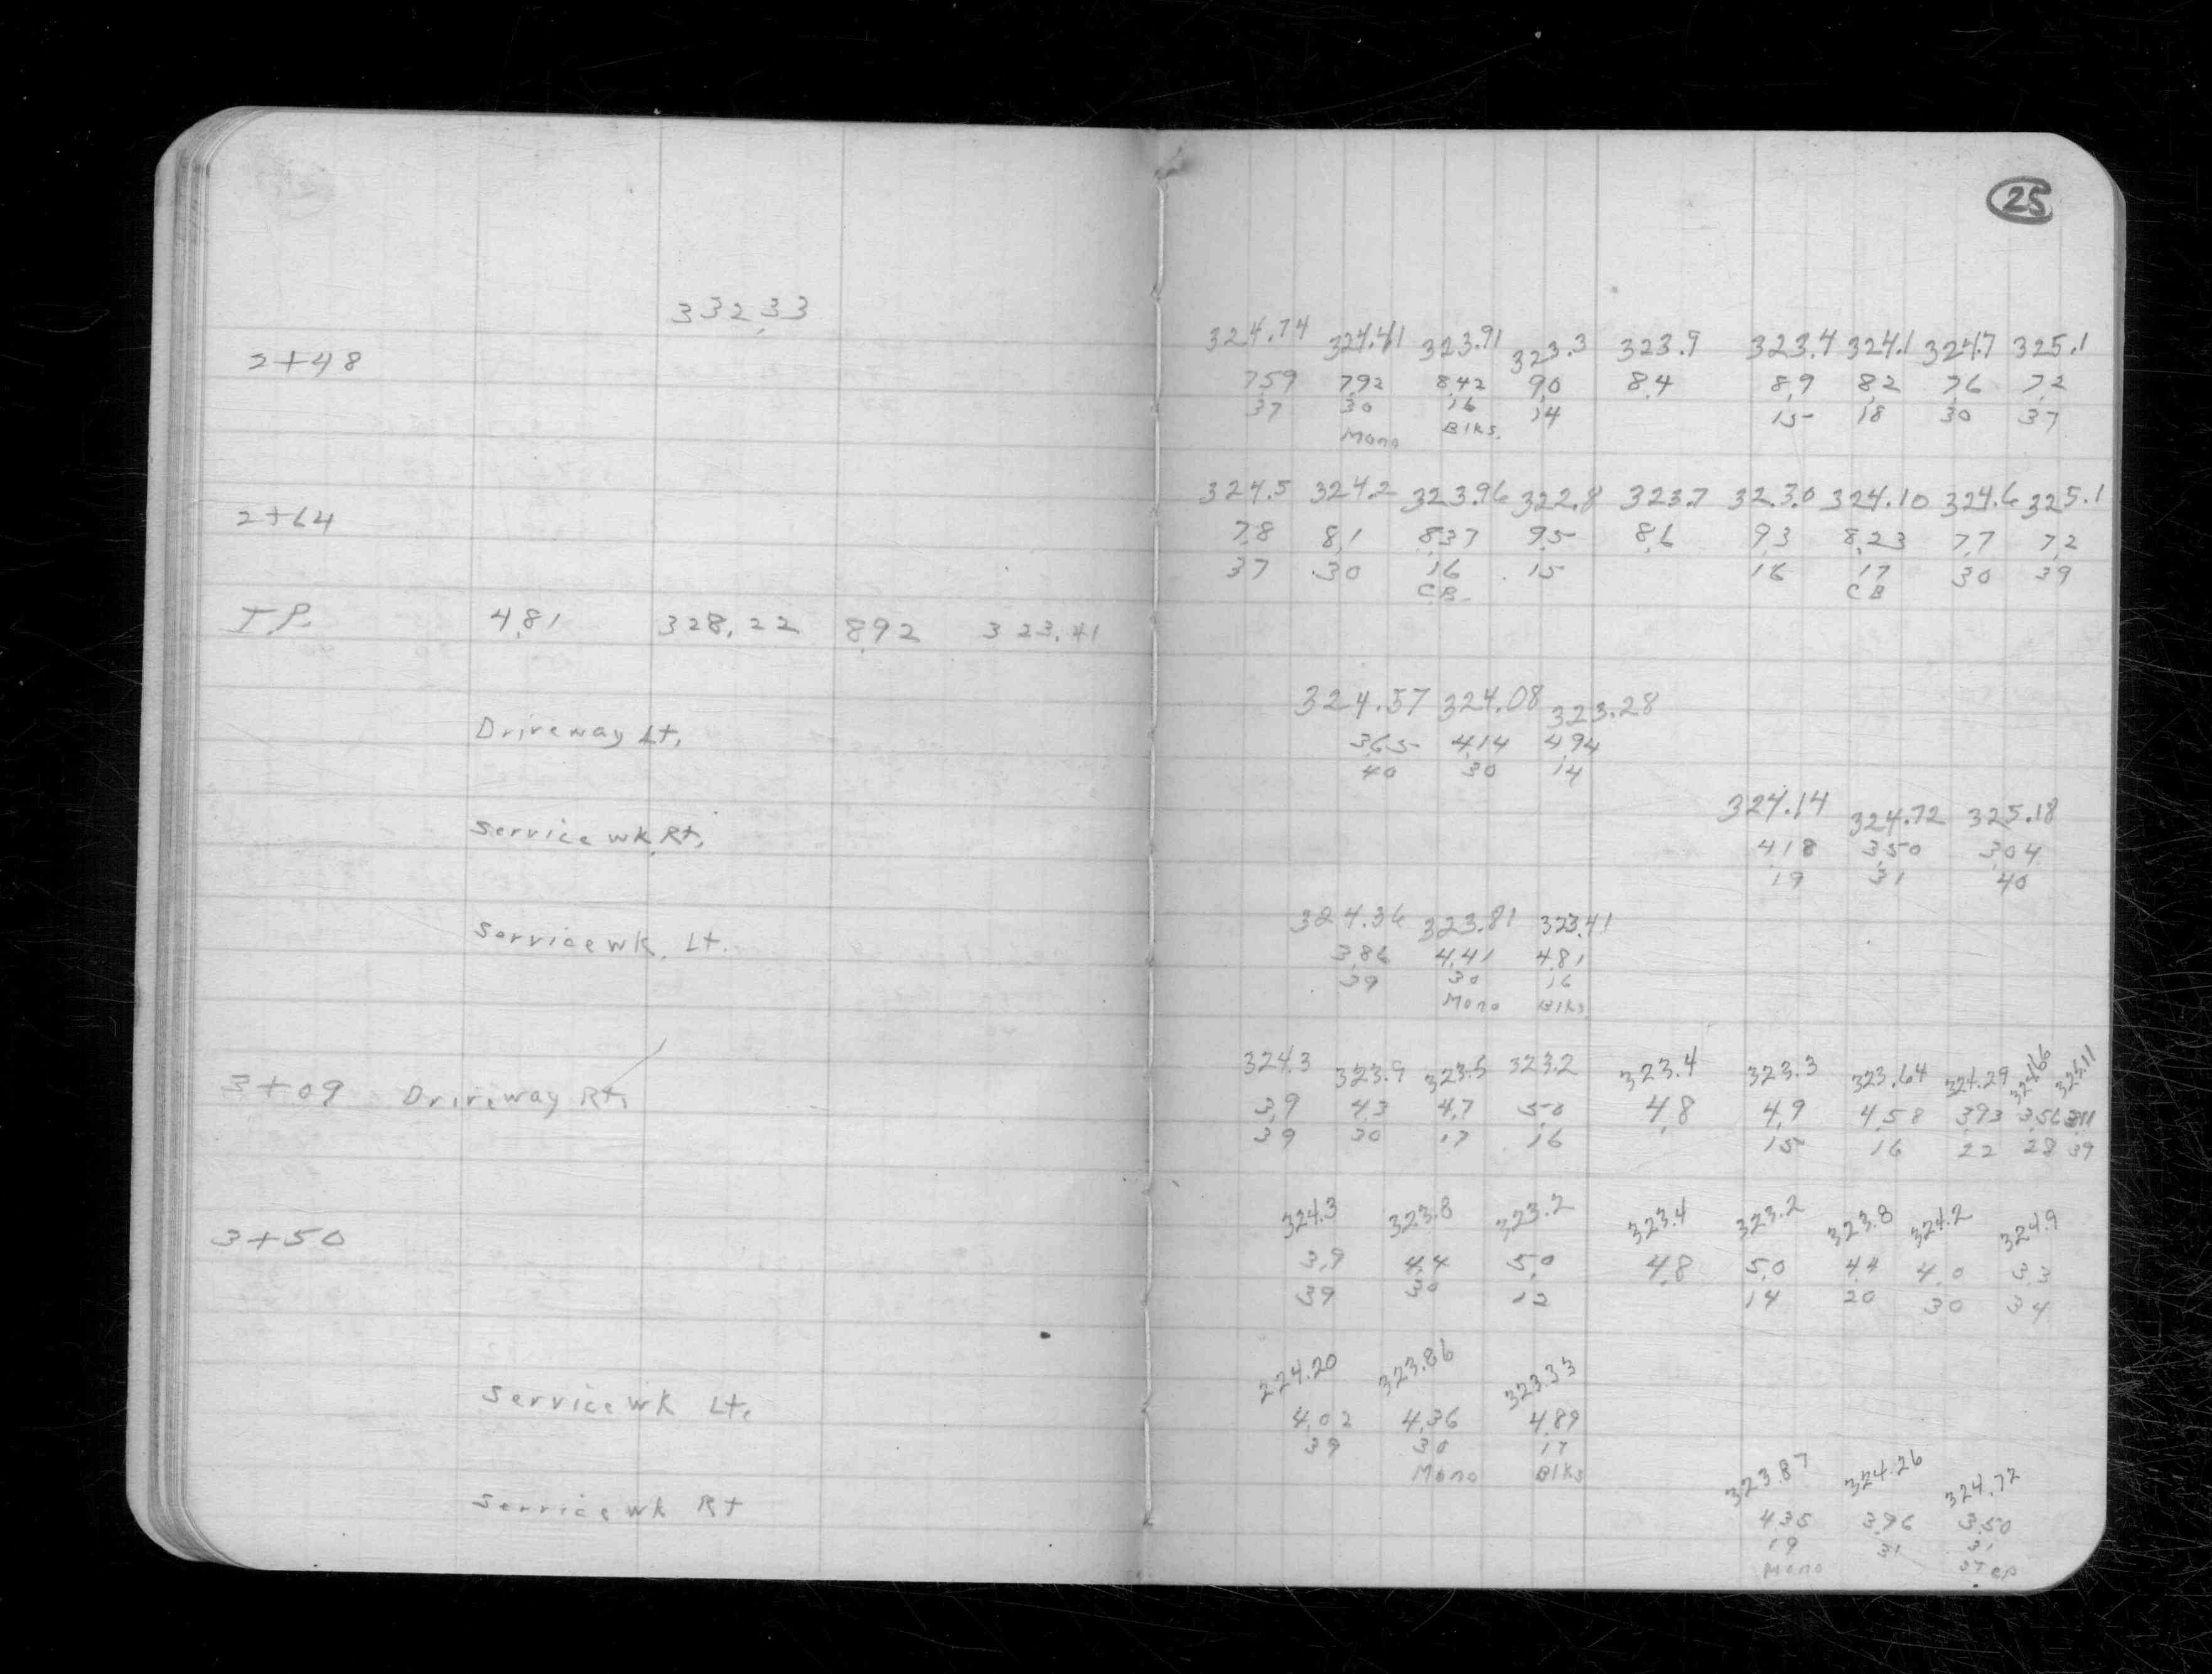 25
332.33
324.74 324.41 323.91 323.3 323.9 323.4 324.1 324.7 325.1
2+48 7.59 7.92 8.42 9.0 8.4 8.9 8.2 7.6 7.2
37 30 16 14 15 18 30 37
Mono Blks.
324.5 324.2 323.96 322.8 323.7 323.0 324.10 324.6 325.1
2+64 7.8 8.1 8.37 9.5 8.6 9.3 8.23 7.7 7.2
37 30 16 15 16 17 30 39
CB CB
T.P. 4.81 328.22 8.92 323.41
324.57 324.08 323.28
Driveway Lt. 3.65 4.14 4.94
40 30 14
324.14 324.72 325.18
Service wk Rt. 4.18 3.50 3.04
19 31 40
324.36 323.81 323.41
Service wk. Lt. 3.86 4.41 4.81
39 30 16
Mono Blks
324.3 323.9 323.5 323.2 323.4 323.3 323.64 324.29 324.66 325.11
3+09 Driveway Rt. 3.9 4.3 4.7 5.0 4.8 4.9 4.58 3.93 3.56 3.11
39 30 17 16 15 16 22 28 39
324.3 323.8 323.2 323.4 323.2 323.8 324.2 324.9
3+50 3.9 4.4 5.0 4.8 5.0 4.4 4.0 3.3
39 30 12 14 20 30 34
224.20 323.86 323.33
Service wk Lt. 4.02 4.36 4.89
39 30 17
Mono Blks
323.87 324.26 324.72
Service wk Rt 4.35 3.96 3.50
19 31 31
Mono Step